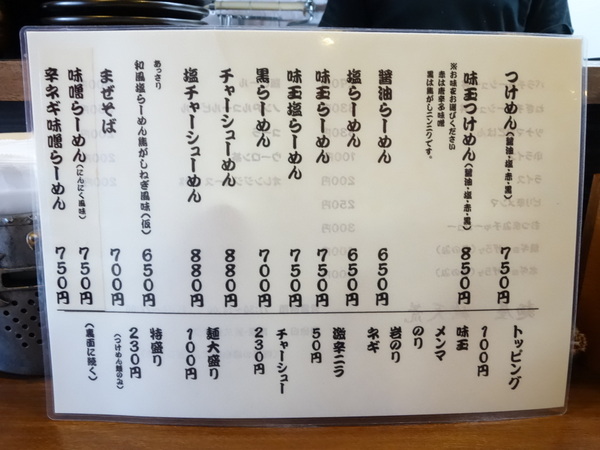 つけめん(醤油・塩・赤・黒) 750円
味玉つけめん(醤油・塩・赤・黒) 850円
※お味をお選びください
赤は唐辛子味噌
黒は焦がしニンニクです。
醤油らーめん 650円
塩らーめん 650円
味玉らーめん 750円
味玉塩らーめん 750円
黒らーめん 700円
チャーシューめん 880円
塩チャーシューめん 880円
あっさり
和風塩らーめん焦がしねぎ風味(仮) 650円
まぜそば 700円
味噌らーめん(にんにく風味) 750円
辛ネギ味噌らーめん 750円
トッピング
100円
味玉
メンマ
のり
岩のり
ネギ
激辛ニラ
50円
チャーシュー
230円
麺大盛り
100円
特盛り
230円
(つけめん類のみ)
(裏面に続く)